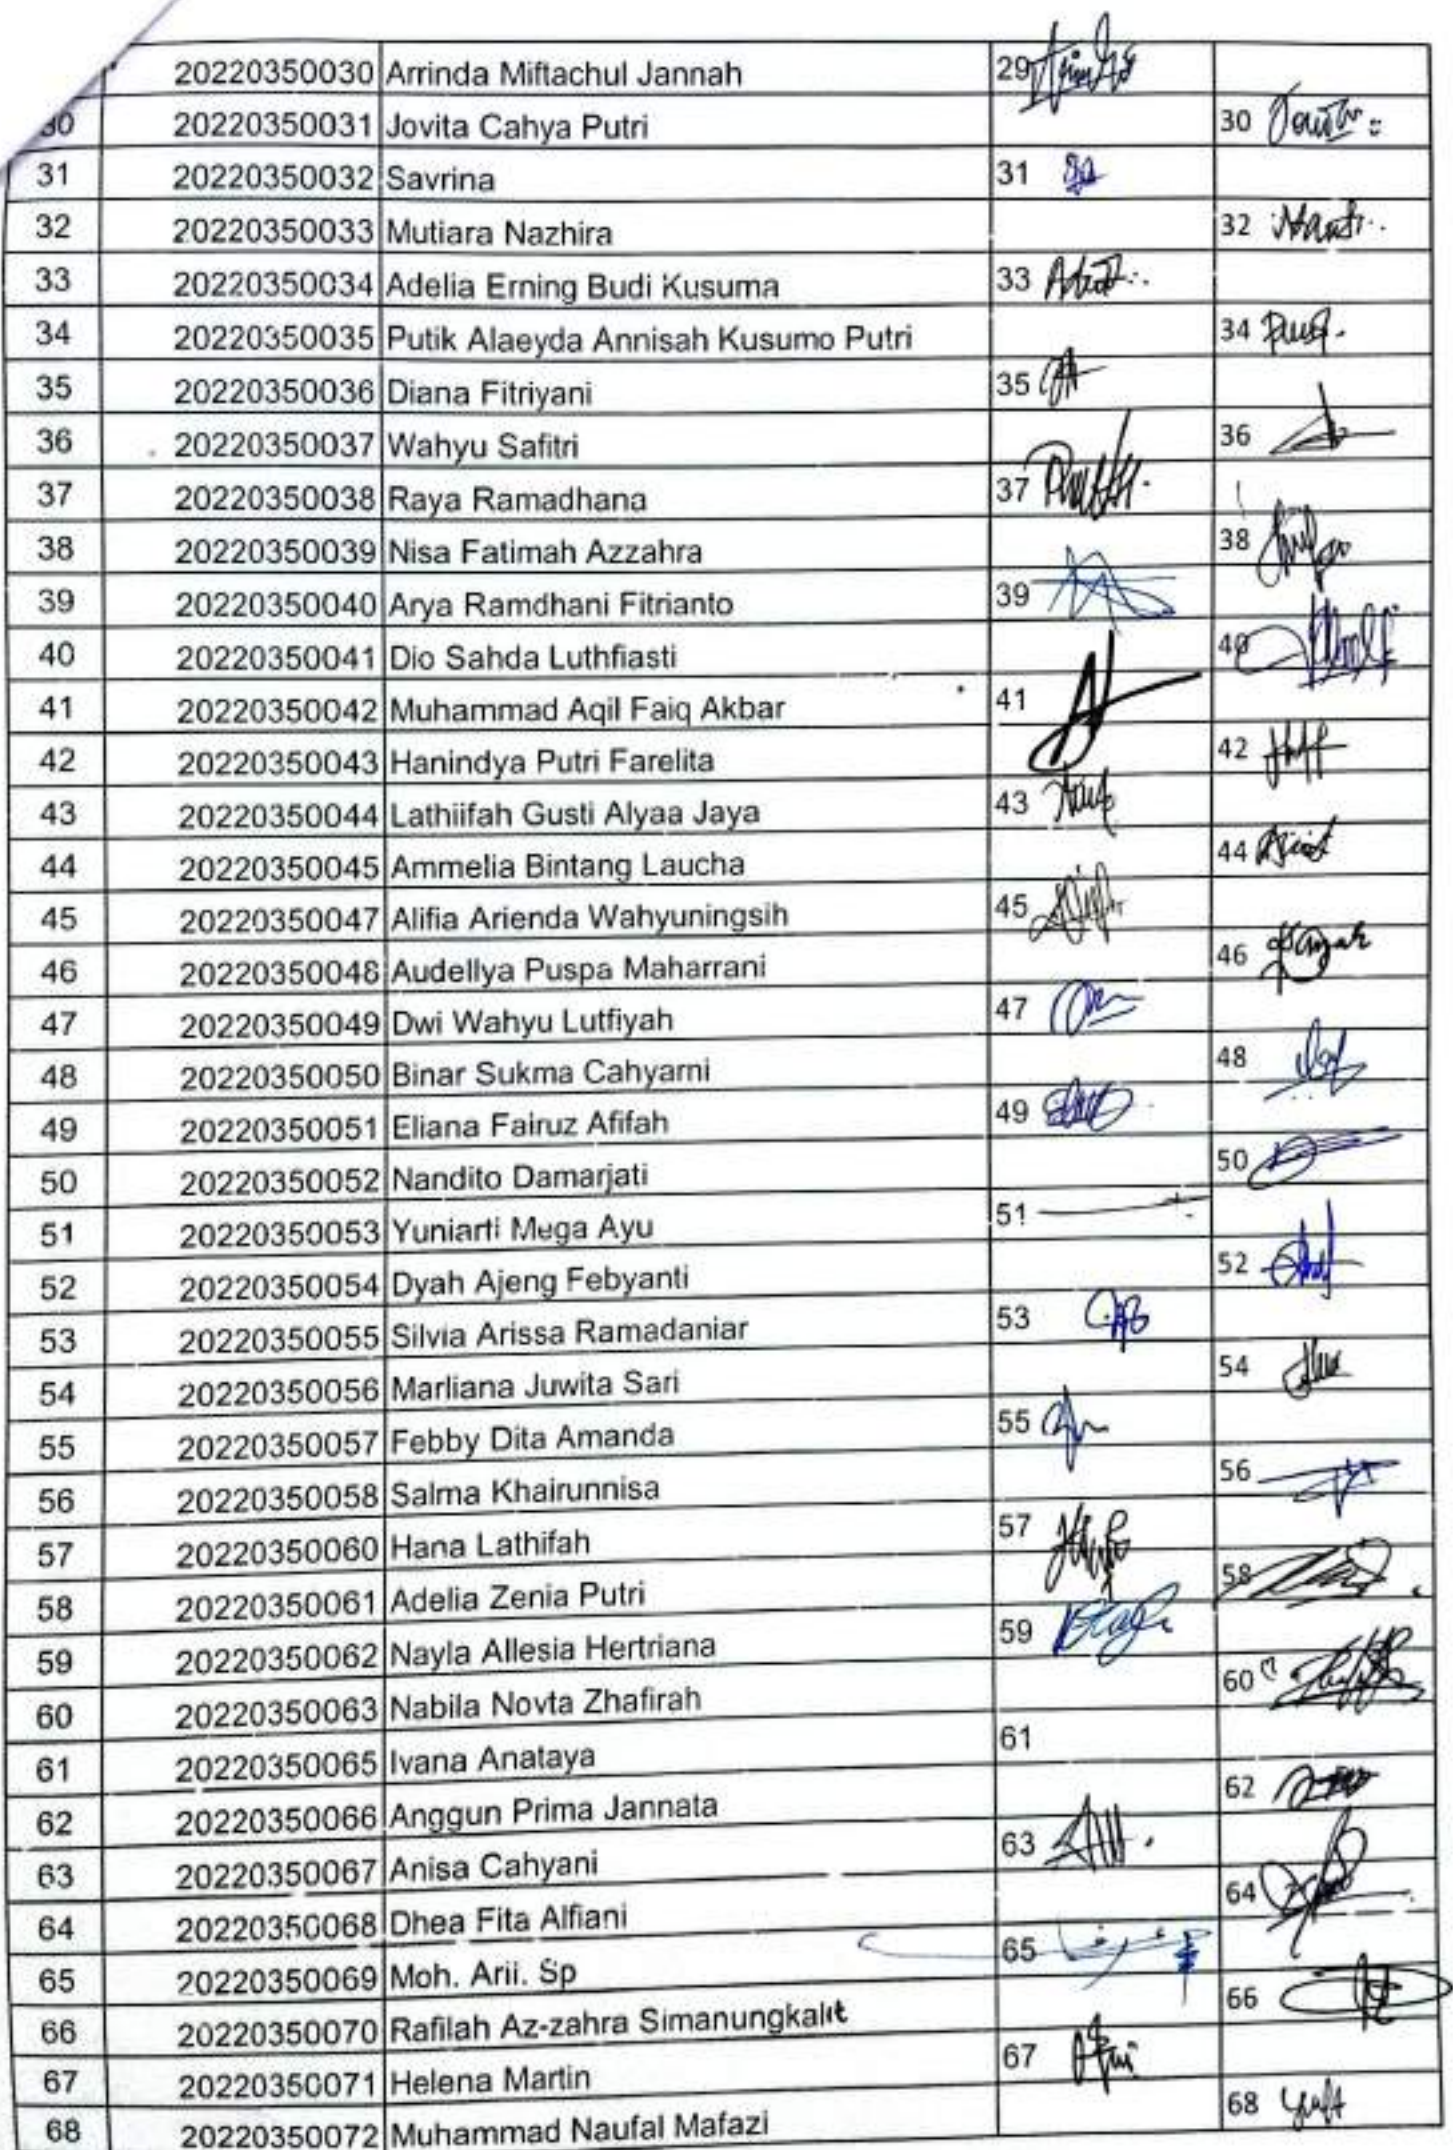 20220350030 Arrinda Miftachul Jannah 29
30 20220350031 Jovita Cahya Putri 30
31 20220350032 Savrina 31
32 20220350033 Mutiara Nazhira 32
33 20220350034 Adelia Erning Budi Kusuma 33
34 20220350035 Putik Alaeyda Annisah Kusumo Putri 34
35 20220350036 Diana Fitriyani 35
36 20220350037 Wahyu Safitri 36
37 20220350038 Raya Ramadhana 37
38 20220350039 Nisa Fatimah Azzahra 38
39 20220350040 Arya Ramdhani Fitrianto 39
40 20220350041 Dio Sahda Luthfiasti 40
41 20220350042 Muhammad Aqil Faiq Akbar 41
42 20220350043 Hanindya Putri Farelita 42
43 20220350044 Lathiifah Gusti Alyaa Jaya 43
44 20220350045 Ammelia Bintang Laucha 44
45 20220350047 Alifia Arienda Wahyuningsih 45
46 20220350048 Audellya Puspa Maharrani 46
47 20220350049 Dwi Wahyu Lutfiyah 47
48 20220350050 Binar Sukma Cahyarni 48
49 20220350051 Eliana Fairuz Afifah 49
50 20220350052 Nandito Damarjati 50
51 20220350053 Yuniarti Mega Ayu 51
52 20220350054 Dyah Ajeng Febyanti 52
53 20220350055 Silvia Arissa Ramadaniar 53
54 20220350056 Marliana Juwita Sari 54
55 20220350057 Febby Dita Amanda 55
56 20220350058 Salma Khairunnisa 56
57 20220350060 Hana Lathifah 57
58 20220350061 Adelia Zenia Putri 58
59 20220350062 Nayla Allesia Hertriana 59
60 20220350063 Nabila Novta Zhafirah 60
61 20220350065 Ivana Anataya 61
62 20220350066 Anggun Prima Jannata 62
63 20220350067 Anisa Cahyani 63
64 20220350068 Dhea Fita Alfiani 64
65 20220350069 Moh. Arii. Sp 65
66 20220350070 Rafilah Az-zahra Simanungkalit 66
67 20220350071 Helena Martin 67
68 20220350072 Muhammad Naufal Mafazi 68